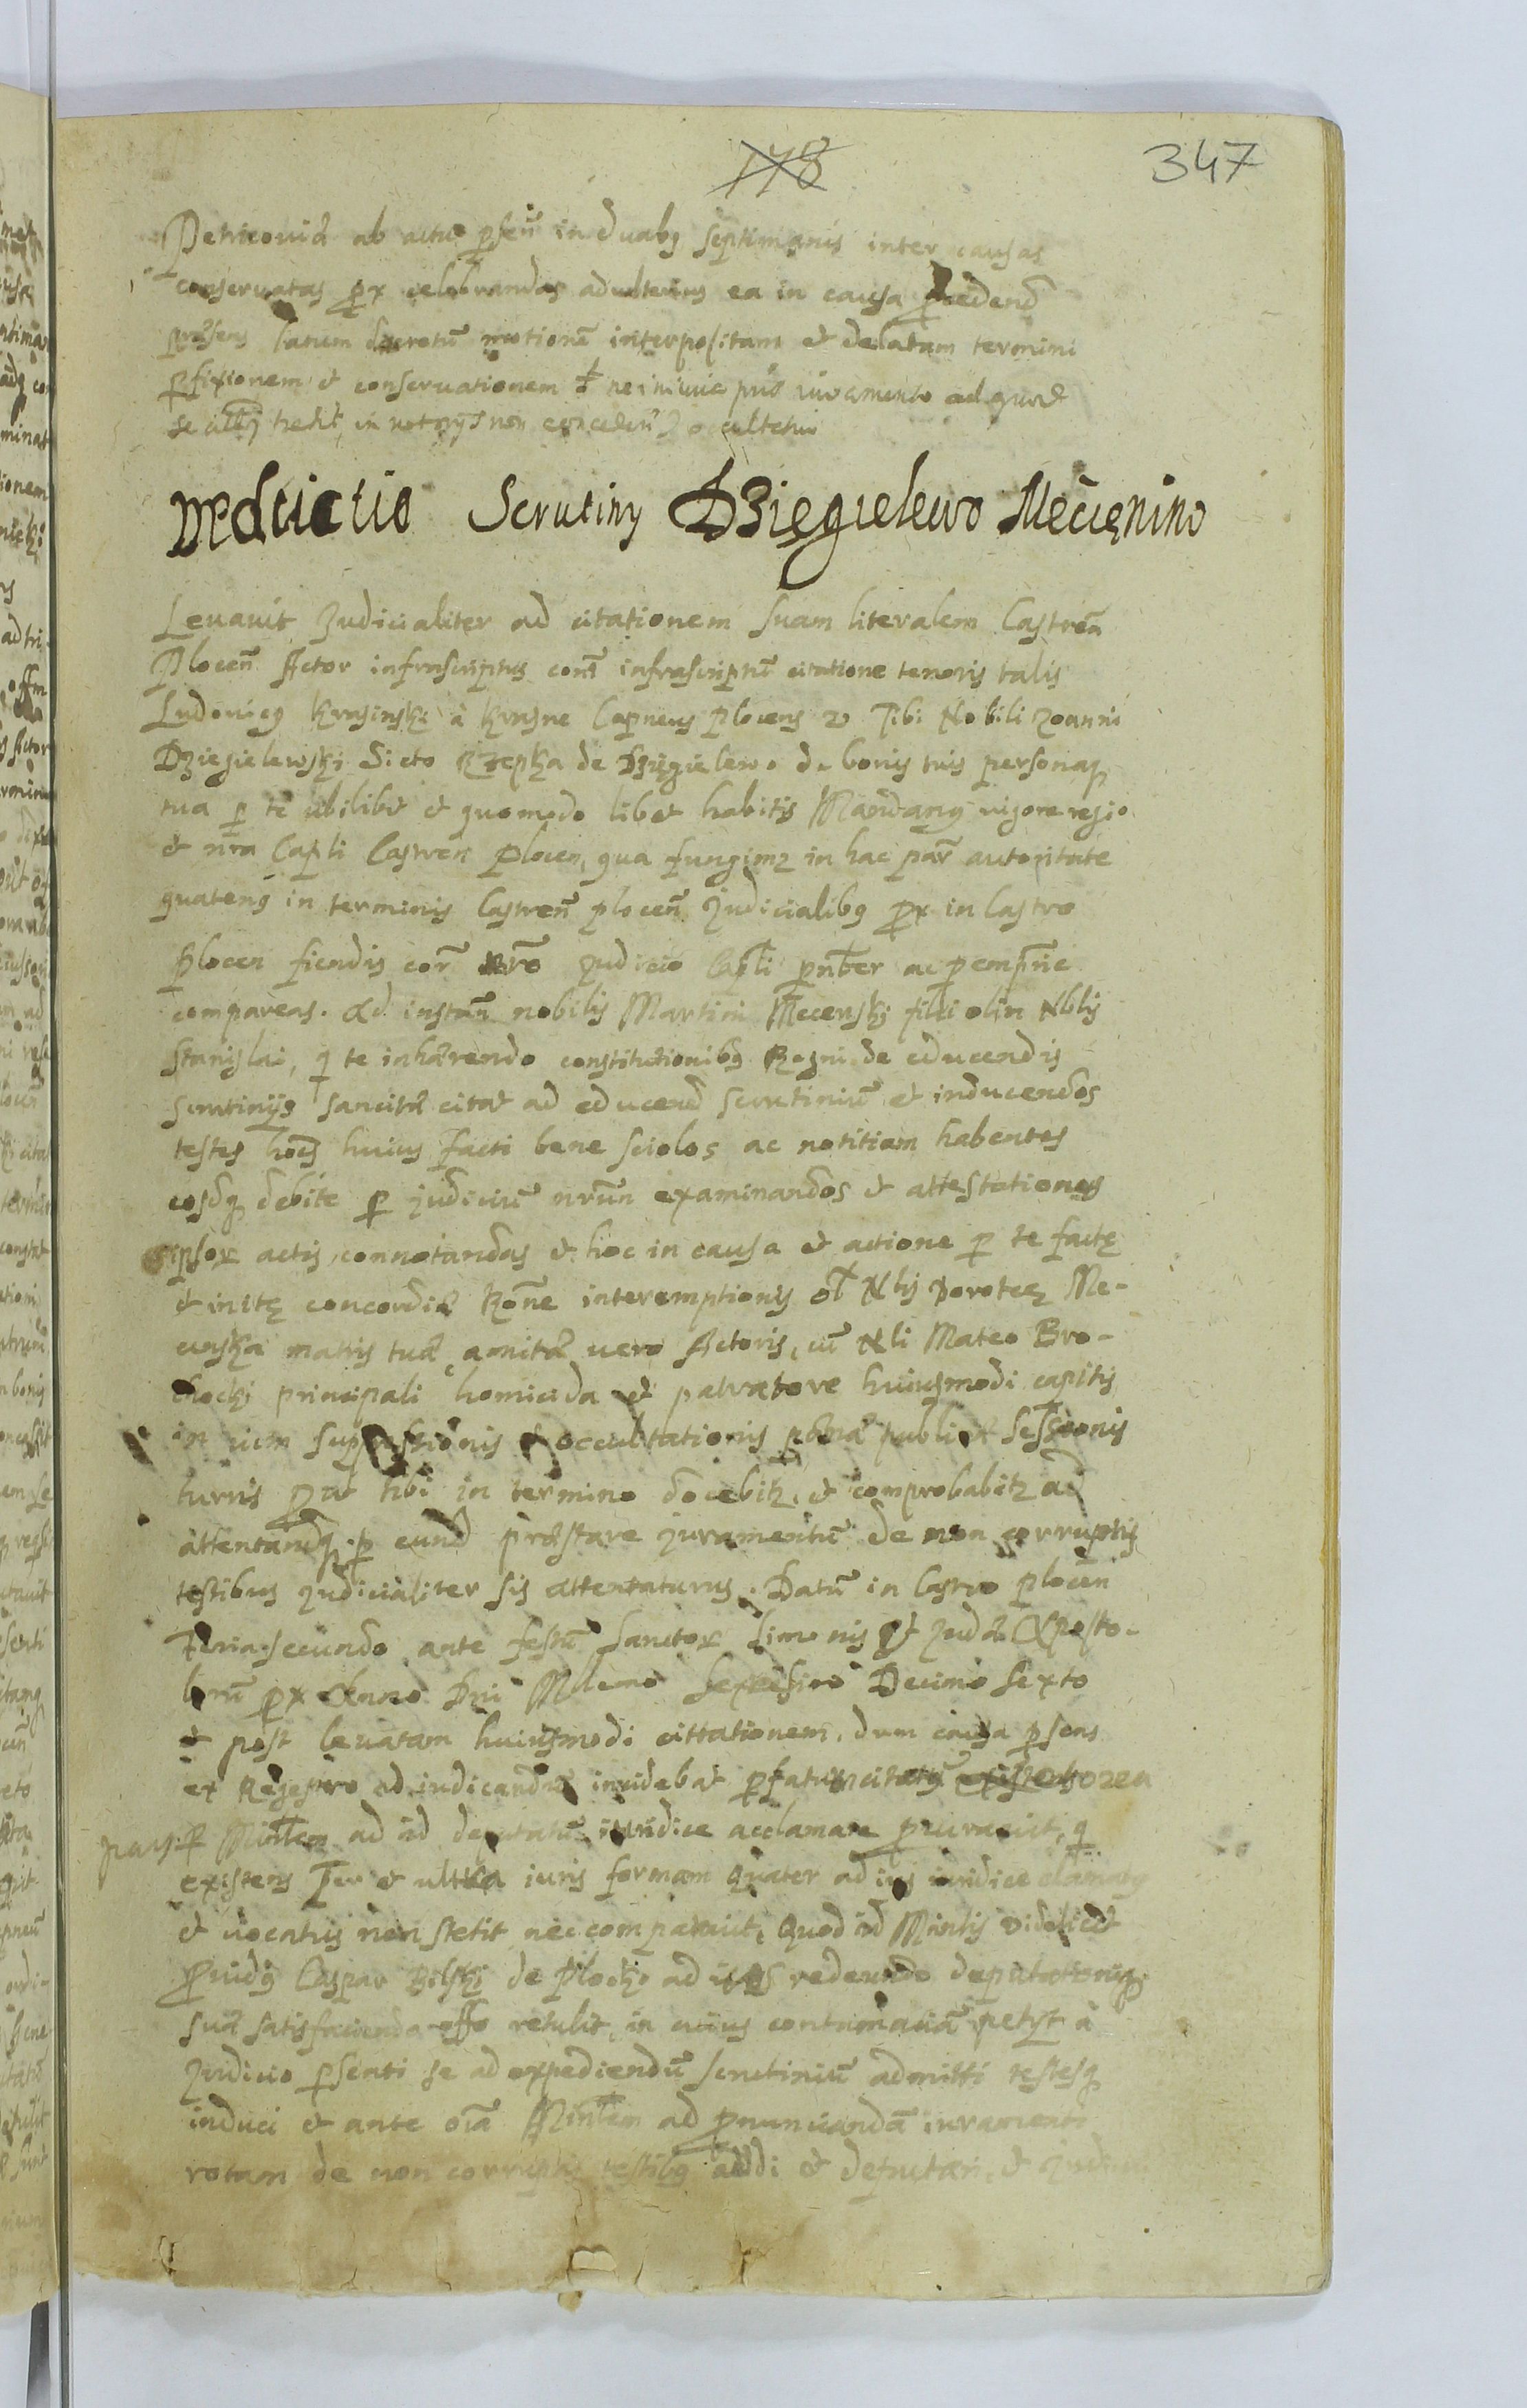 178
347
Petricoviæ ab actu p̄senti in duabꝫ septimanis inter causas
conservatas pꝛox celebrandas adulterius ea in causa pꝛocedend
præsens latum decretū motionē interpositam et delatam termini
p̄fixionem et conservationem
se hedit, in notorys non
Deductio Scrutiny Dzięgielewo Męcięnino
Levavit Judicialiter ad citationem suam literalem Castreñ
Ploceñ Actor infrascriptus conť infrascriptū citatione tenoris talis
Ludovicꝫ Krasinski à Krasne Capneus Plocens Tibi Nobili Joanni
Dziegielewski dicto Rzepka de Dziegielewo de bonis tuis personaqꝫ
tua p te ubilibet et quomodo libet habitis Mandamꝫ vigore regio
et nr̄a Capli Castren Plocen, qua fungimꝫ in hac par̃ autoritate
quatenꝫ in terminis Castreñ ploceñ Judicialibꝫ pꝛox in Castro
Plocen fiendis cor̃ nr̄o Judicio Capli pñter ac pemptrie
compareas. Ad instañ nobilis Martini Mecenski filii olim Nblis
Stanislai, q te inhærendo constitutionibꝫ Regni de educendis
scrutinÿs sancitæ citat ad educend scrutiniū et inducendos
testes hoēs huius facti bene sciolos ac notitiam habentes
eosdqꝫ debite p judiciū nr̄um examinandos et attestationes
ipsoꝝ actis connotandas et hoc in causa et actione p te factę
et initę concordiæ Rōne interemptionis ol Nblis Dorotheę Me-
cinska matris tuæ, amitæ vero Actoris, cū Nbli Mateo Bro-
chocki principali homicida et patratore huiusmodi capitis
in vim suppressionis et occultationis pœnæ publicæ sessionis
turris pꝛout tibi in termino docebitꝛ et comprobabitꝛ ad
attentandqꝫ p eund præstare juramentū de non corruptis
testibus judicialiter sis attentaturus. Datū in Castro plocen
Feria secundo ante festū Sanctoꝝ Simonis et Judæ Aposto-
lorū pꝛox Anno Dni Mlemo Sexcesimo Decimo Sexto
et post levatam huiusmodi cittationem, dum causa p̄sens
ex Regestro ad iudicandū incidebat p̄fatum citatū
p Minlem ad id deputatū iuridice acclamare pꝛocuravit, q
existens Ter et ultra iuris formam Quater ad ius iuridice clamatꝫ
et vocatus non stetit nec comparuit, Quod id Minlis videlicet
pꝛovidꝫ Caspar Bilski de Plocko ad iꝫ redeundo deputationiqꝫ
suæ satisfaciendo offo retulit, in cuius contumaciā petyt à
Judicio p̄senti se ad expediendū scrutiniū admitti testesqꝫ
induci et ante oīa Minlem ad pꝛonunciandā iuramenti
rotam de non corruptis testibꝫ addi et deputari, et